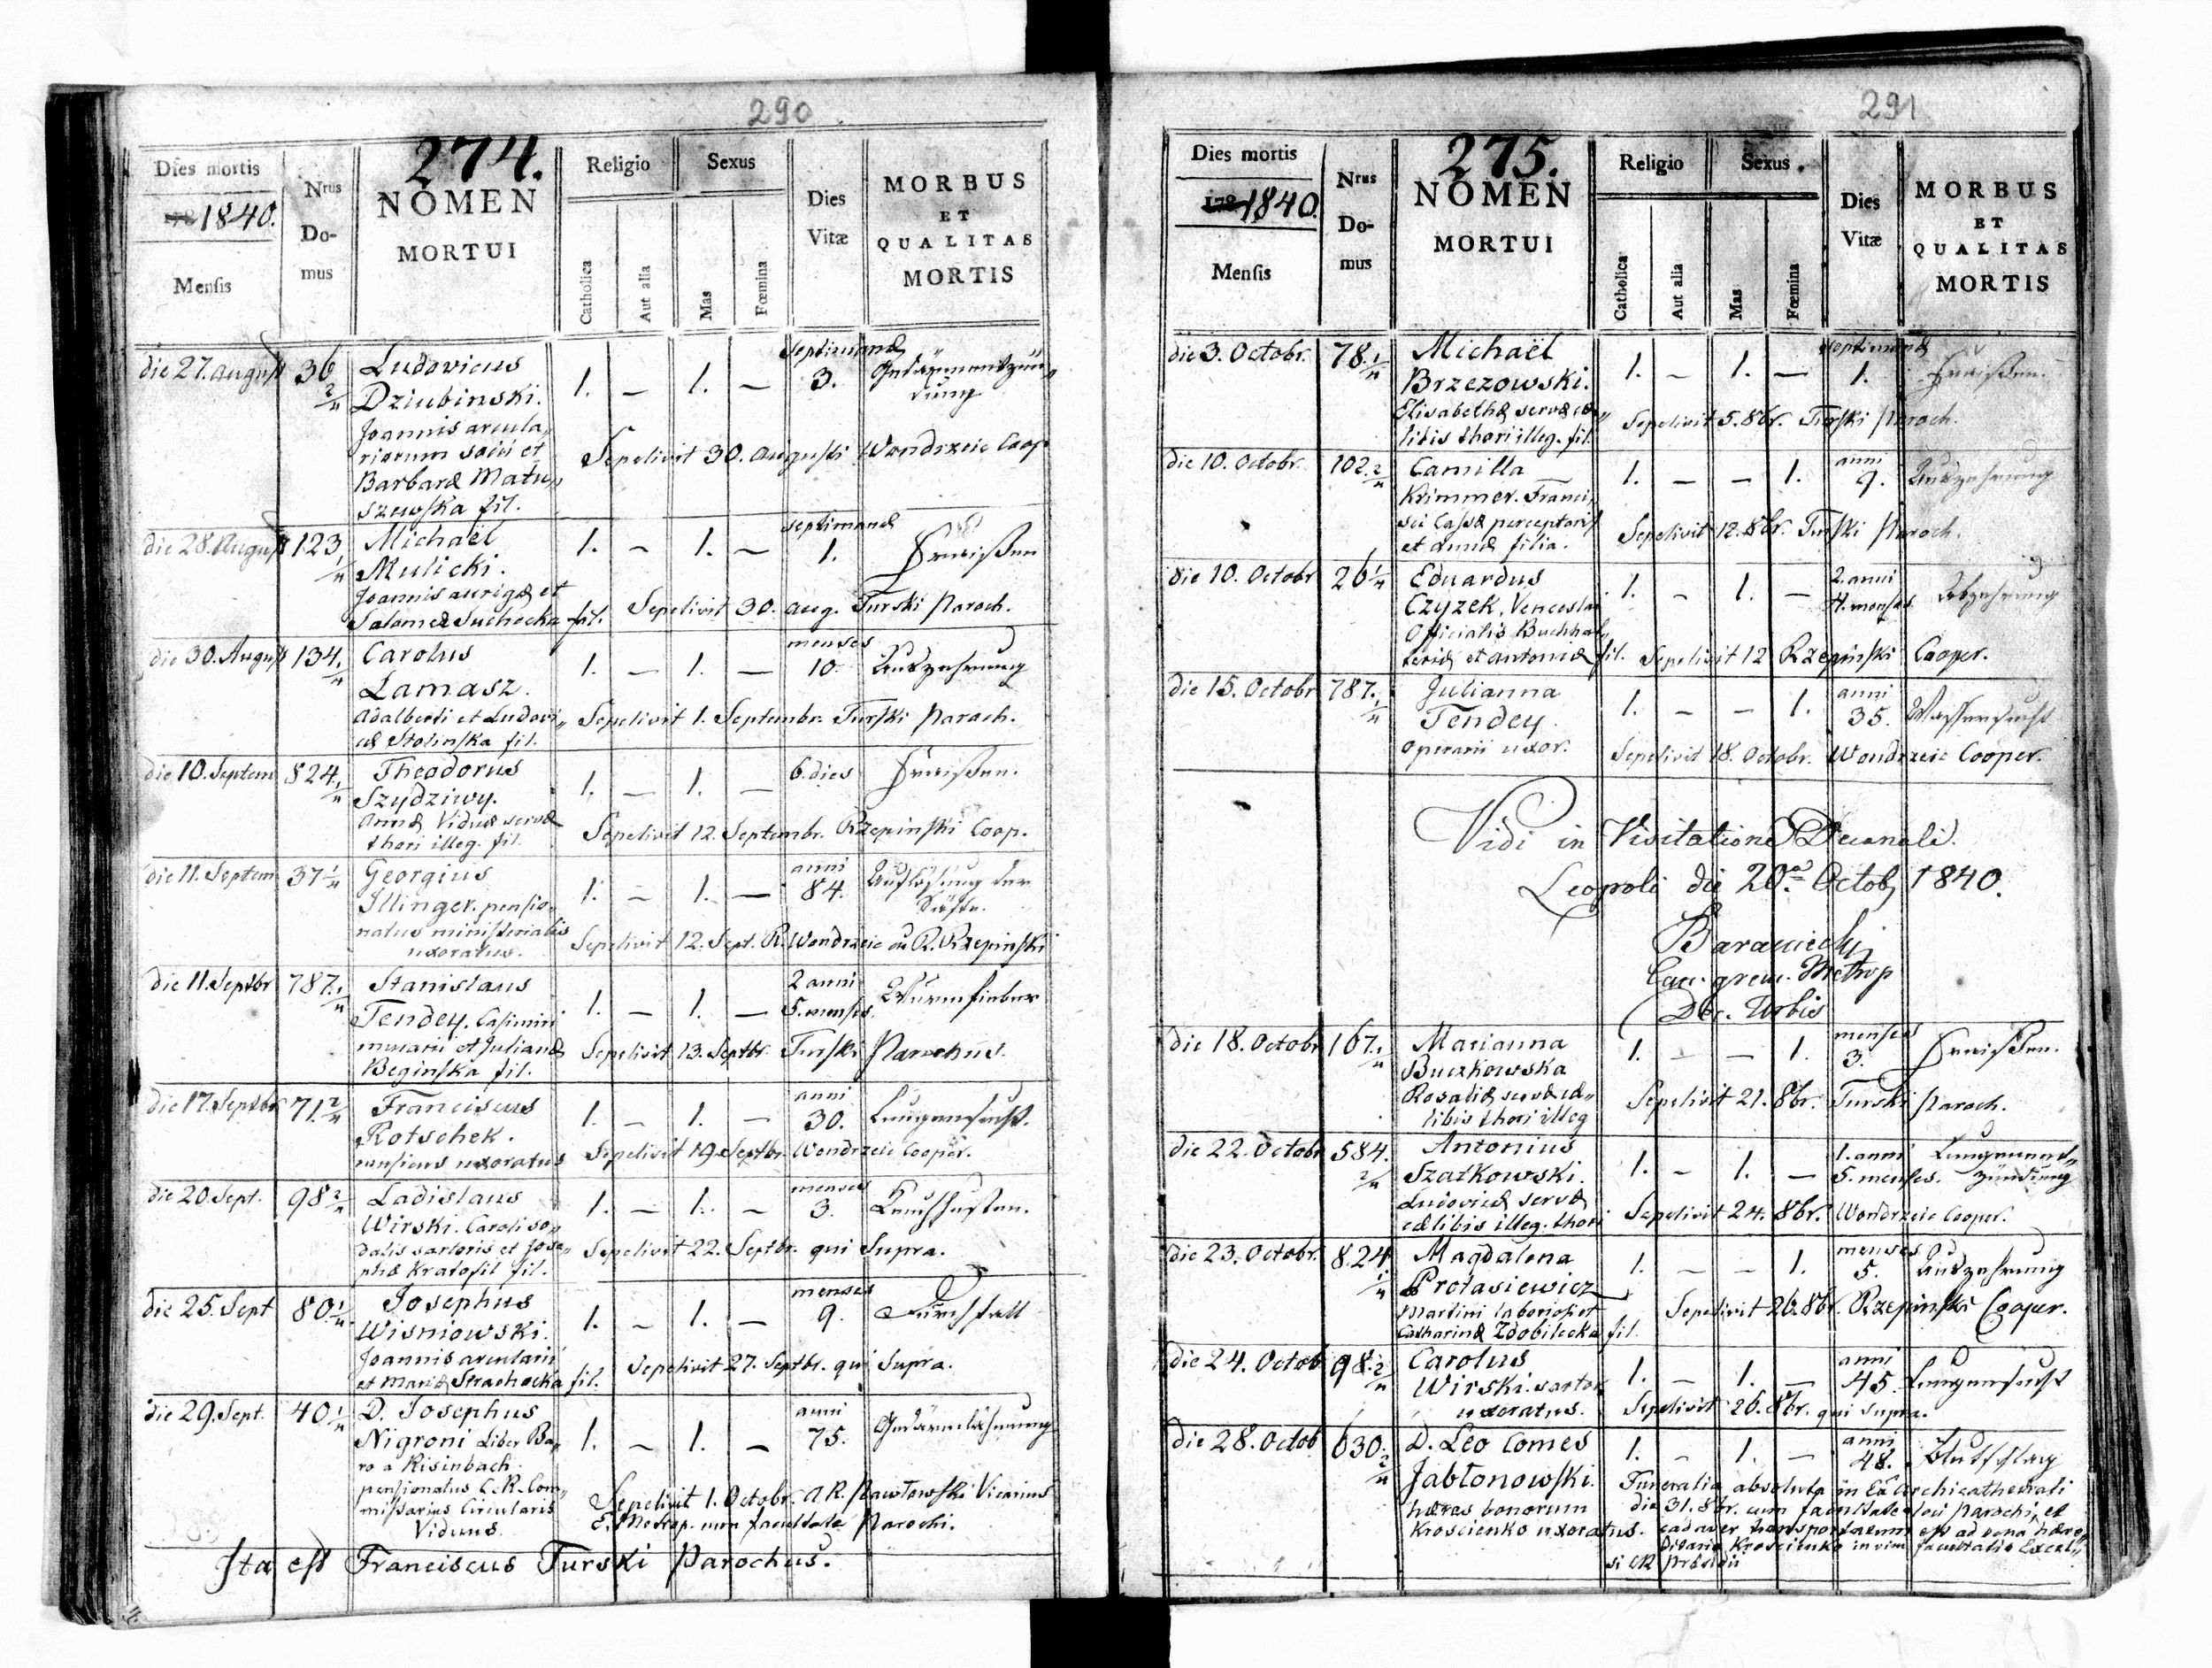 290
274.
Dies mortis
1840.
Mensis
Nrus
Do-
mus
NOMEN
MORTUI
Religio
Catholica
Aut alia
Sexus
Mas
Fœmina
Dies
Vitæ
MORBUS
ET
QUALITAS
MORTIS
die 27. August 36 2/4 Ludovicus 1. – 1. – septimanæ 3. Gedärmentzün„
Dziubinski. dung
Joannis arcula„
riorum socii et Sepelivit 30. Augusti Wondrzeic Coop
Barbaræ Matu„
szewska fil.
die 28. August 123 1/4 Michaël 1. – 1. – septimanæ 1. Fraißen
Mulicki.
Joannis aurigæ et
Salomeæ Suchocka fil. Sepelivit 30. Aug. Turski Paroch.
die 30. August 134. 1/4 Carolus 1. – 1. – menses 10. Auszehrung
Lamasz.
Adalberti et Ludovi„ Sepelivit 1. Septembr. Turski Paroch.
cæ Stolinska fil.
die 10. Septem 824. 1/4 Theodorus 1. – 1. – 6. dies Fraißen.
Szydziwy.
Annæ Viduæ servæ Sepelivit 12. Septembr. Rzepinski Coop.
thori illeg. fil.
die 11. Septem 37 1/4 Georgius 1. – 1. – anni 84. Auflösung der
Illinger. pensio„ Säfte.
natus ministerialis Sepelivit 12. Sept. R. Wondrzeic R. Rzepinski
uxoratus.
die 11. Septbr 787. 1/4 Stanislaus 1. – 1. – 2 anni 5. menses. Wurmfieber
Tendey. Casimiri
murarii et Julianæ Sepelivit 13. Septbr. Turski Parochus.
Beginska fil.
die 17. Septbr 71. 2/4 Franciscus 1. – 1. – anni 30. Lungensucht.
Rotschek.
uxoratus Sepelivit 19. Septbr. Wondrzeic Cooper.
die 20. Sept. 98 2/4 Ladislaus 1. – 1. – menses 3. Keuchhusten.
Wirski. Caroli so„
dalis sartoris et Jose„ Sepelivit 22. Septbr. qui Supra.
phæ Kratofil fil.
die 25. Sept 80. 1/4 Josephus 1. – 1. – menses 9. Durchfall
Wisniowski.
Joannis arcularii Sepelivit 27. Septbr. qui Supra.
et Mariæ Strachocka fil.
die 29. Sept. 40 1/4 D. Josephus 1. – 1. – anni 75. Gedärmlähmung
Nigroni Liber Ba„
ro a Risinbach.
pensionatus C. R. Com„ Sepelivit 1. Octobr. A. R. Pawłowski Vicarius
missarius Circularis E. Metrop. cum facultate Parochi.
Viduus.
Ita est Franciscus Turski Parochus.
291
275.
Dies mortis
1840.
Mensis
Nrus
Do-
mus
NOMEN
MORTUI
Religio
Catholica
Aut alia
Sexus
Mas
Fœmina
Dies
Vitæ
MORBUS
ET
QUALITAS
MORTIS
die 3. Octobr. 78. 1/4 Michaël 1. – 1. – septimanæ 1. Fraißen.
Brzezowski.
Elisabethæ servæ cæ„ Sepelivit 5. 8br. Turski Paroch.
libis thori illeg. fil.
die 10. Octobr. 102 2/4 Camilla 1. – – 1. anni 9. Auszehrung
Krimmer. Franci„
sci Cassæ perceptoris Sepelivit 12. 8br. Turski Paroch.
et Annæ filia.
die 10. Octobr 26 1/4 Eduardus 1. – 1. – 2. anni 4. menses Abzehrung
Czyzek. Venceslai
Officialis Buchhal„
teriæ et Antoniæ fil. Sepelivit 12 Rzepinski Cooper.
die 15. Octobr 787. 1/4 Julianna 1. – – 1. anni 35. Wassersucht
Tendey.
Operarii uxor. Sepelivit 18. Octobr. Wondrzeic Cooper.
Vidi in Visitatione Decanali.
Leopoli die 20a Octob 1840.
Baraniecki
Can. grem. Metrop
Dec. Urbis
die 18. Octobr 167. 1/4 Marianna 1. – – 1. menses 3. Fraißen.
Buczkowska
Rosaliæ servæ cæ„ Sepelivit 21. 8br. Turski Paroch.
libis thori illeg
die 22. Octobr 584. 2/4 Antonius 1. – 1. – 1. anni 5. menses. Lungenent„
Szatkowski. zündung
Ludovicæ servæ Sepelivit 24. 8br. Wondrzeic Cooper.
cælibis illeg. thori
die 23. Octobr. 824. 1/4 Magdalena 1. – – 1. menses 5. Auszehrung
Protasiewicz
Martini laboriosi et Sepelivit 26. 8br. Rzepinski Cooper.
Catharinæ Zdobilecka fil.
die 24. Octob 98. 2/4 Carolus 1. – 1. – anni 45. Lungensucht
Wirski. sartor
uxoratus. Sepelivit 26. 8br. qui supra.
die 28. Octob 630. 2/4 D. Leo Comes 1. – 1. – anni 48. Blutschlag
Jabłonowski. Funeralia absoluta in Ecc Archicathedrali
hæres bonorum die 31. 8br. cum facultate loci Parochi, et
Kroscienko uxoratus. cadaver transportatum est ad bona hære„
ditaria Kroscienko in vim facultatis Excel„
si CR Præsidii